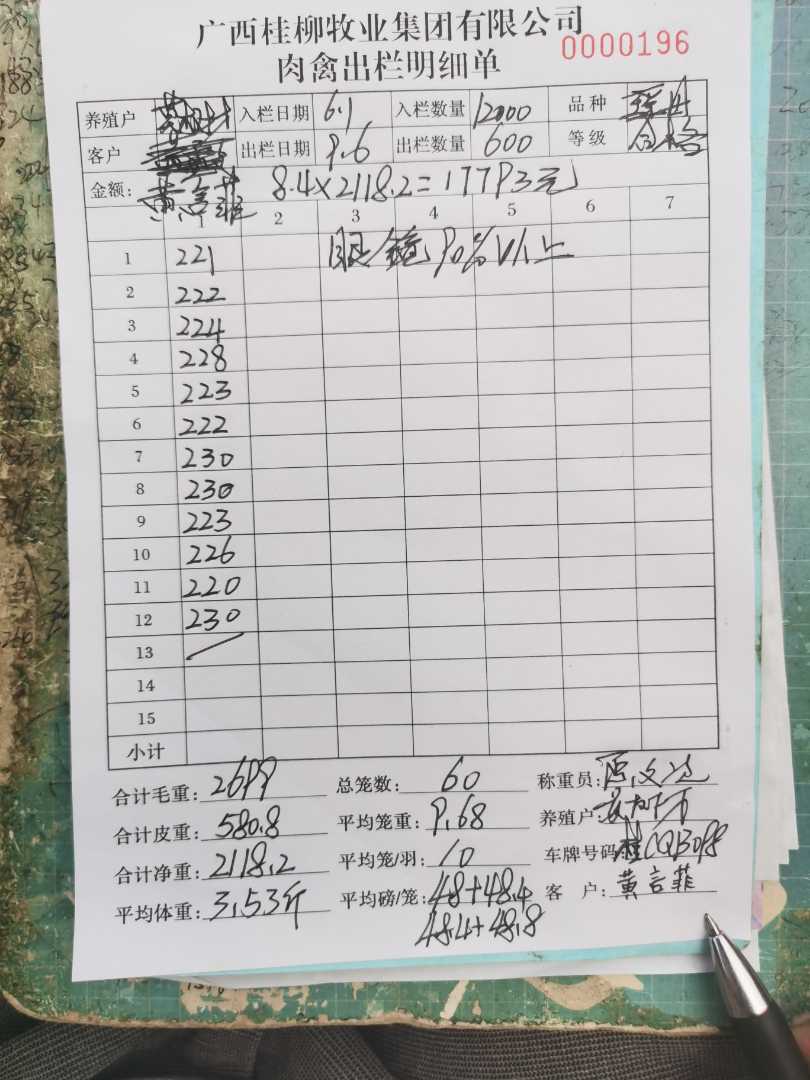 广西桂柳牧业集团有限公司
0000196
肉禽出栏明细单
养殖户 入栏日期 6.1 入栏数量 12000 品种
客户 出栏日期 9.6 出栏数量 600 等级 合格
金额: 黄言菲 8.4×2118.2=17793元
1 2 3 4 5 6 7
1 221 眼镜90%以上
2 222
3 224
4 228
5 223
6 222
7 230
8 230
9 223
10 226
11 220
12 230
13
14
15
小计
合计毛重: 2699 总笼数: 60 称重员:
合计皮重: 580.8 平均笼重: 9.68 养殖户:
合计净重: 2118.2 平均笼/羽: 10 车牌号码:
平均体重: 3.53斤 平均磅/笼: 48+48.4 客 户: 黄言菲
48.4+48.8